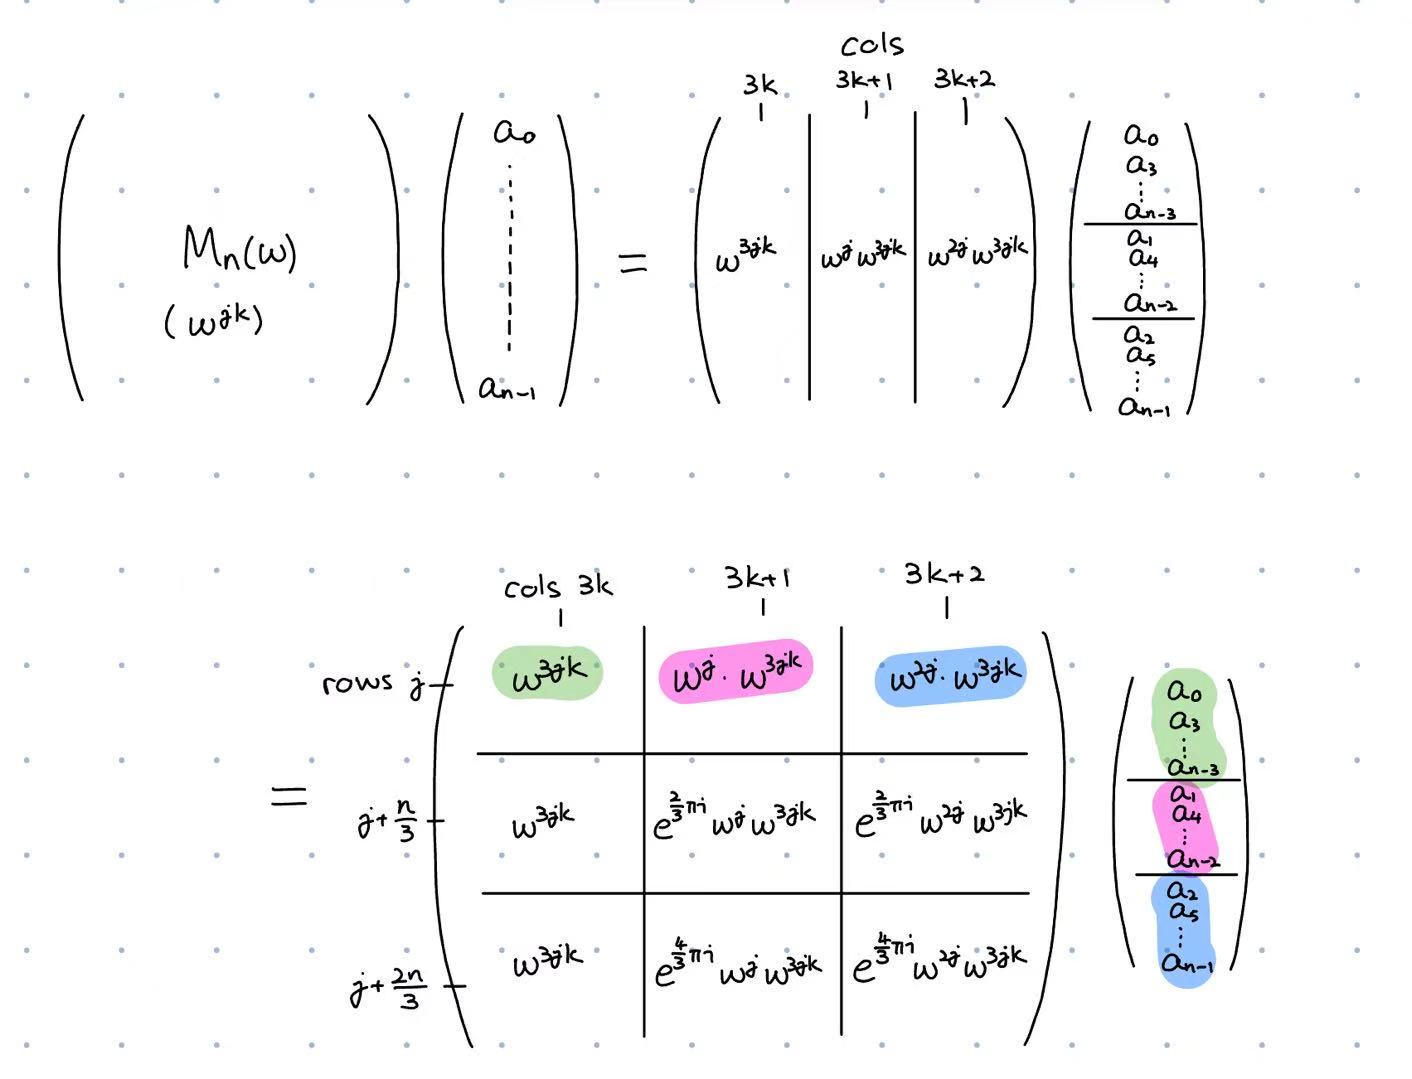 cols
3k 3k+1 3k+2
Mₙ(ω)
(ω^{jk})
a₀
aₙ₋₁
=
ω^{3jk} ω^j ω^{3jk} ω^{2j} ω^{3jk}
a₀
a₃
⋮
aₙ₋₃
a₁
a₄
⋮
aₙ₋₂
a₂
a₅
⋮
aₙ₋₁
cols 3k 3k+1 3k+2
rows j ω^{3jk} ω^j · ω^{3jk} ω^{2j} · ω^{3jk}
=
j+n/3 ω^{3jk} e^{2/3 πi} ω^j ω^{3jk} e^{2/3 πi} ω^{2j} ω^{3jk}
j+2n/3 ω^{3jk} e^{4/3 πi} ω^j ω^{3jk} e^{4/3 πi} ω^{2j} ω^{3jk}
a₀
a₃
⋮
aₙ₋₃
a₁
a₄
⋮
aₙ₋₂
a₂
a₅
⋮
aₙ₋₁